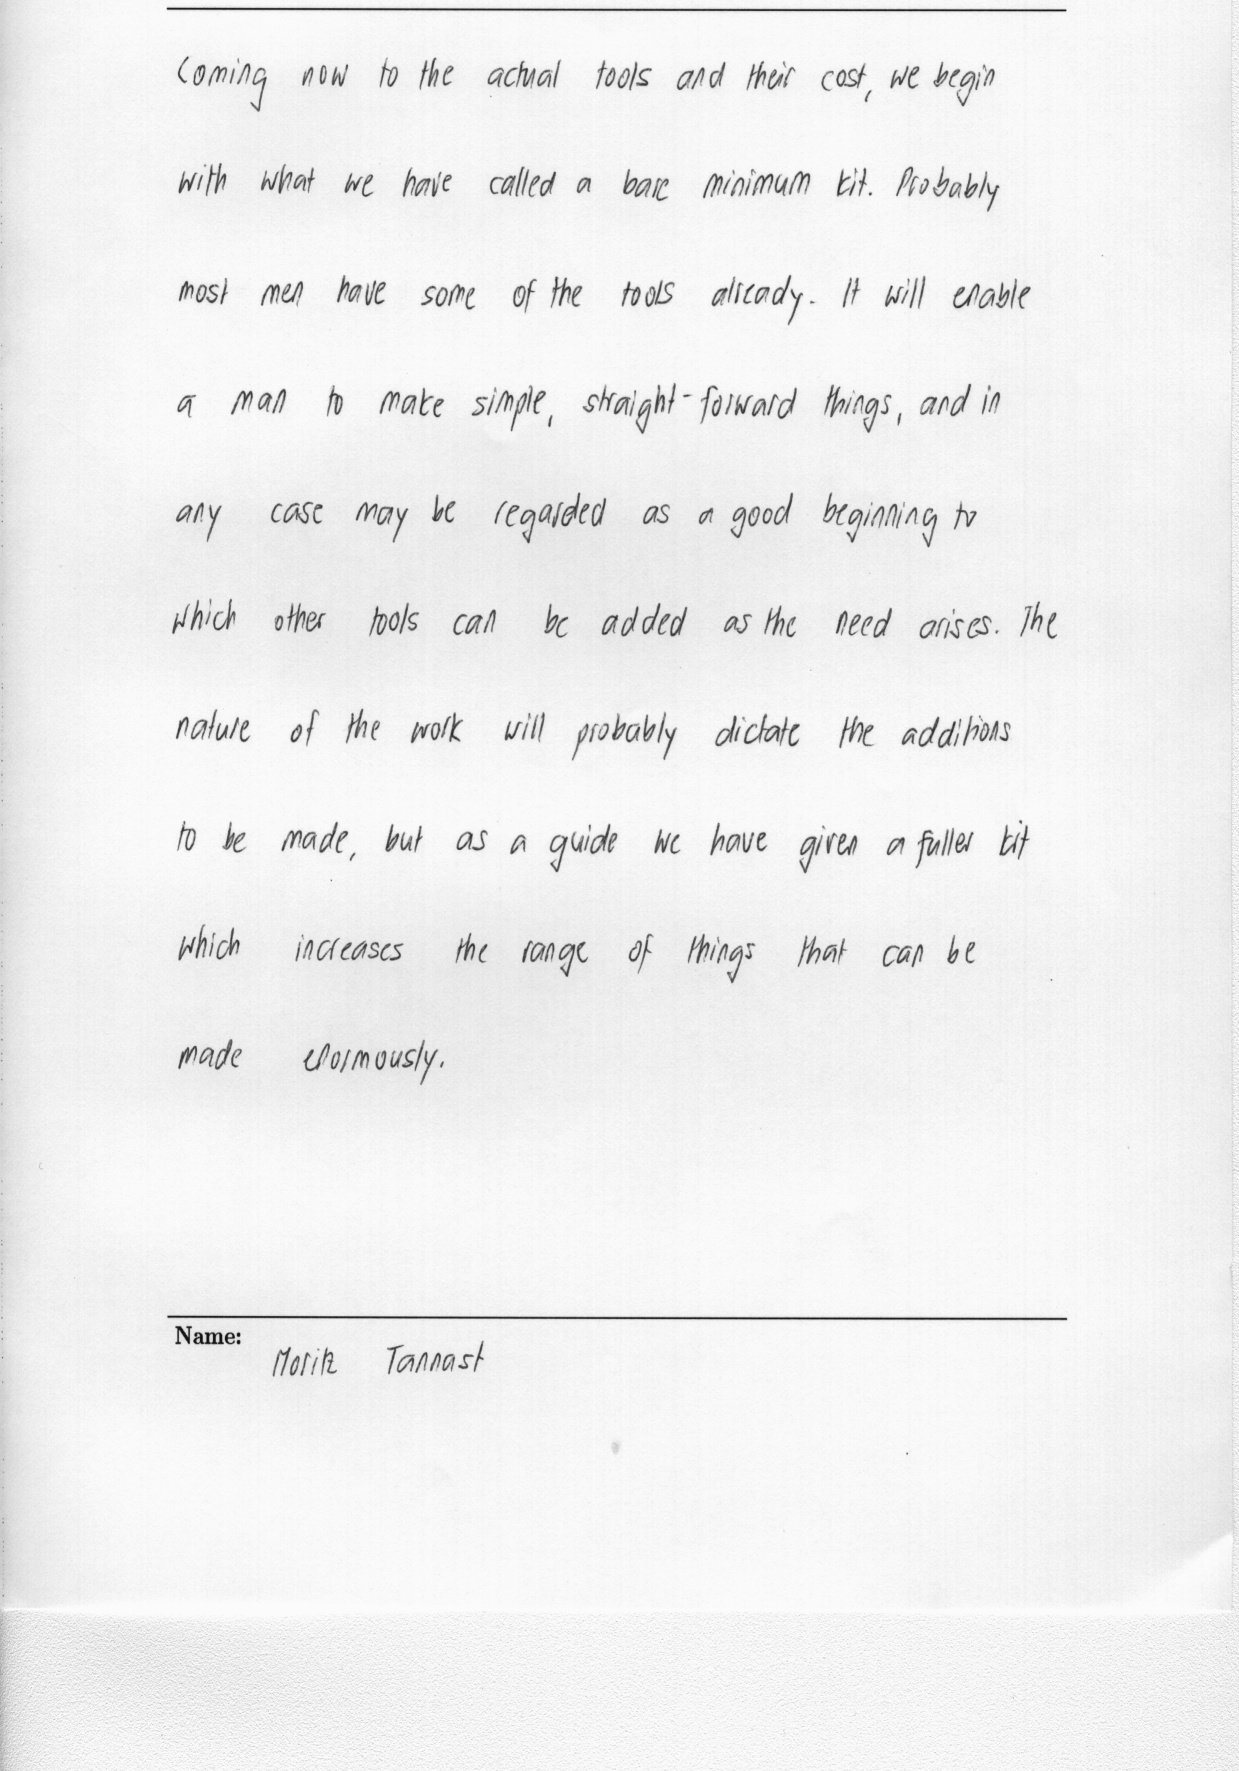 Coming now to the actual tools and their cost, we begin
with what we have called a bare minimum kit. Probably
most men have some of the tools already. It will enable
a man to make simple, straight-forward things, and in
any case may be regarded as a good beginning to
which other tools can be added as the need arises. The
nature of the work will probably dictate the additions
to be made, but as a guide we have given a fuller kit
which increases the range of things that can be
made enormously.
Name:
Moritz Tannast